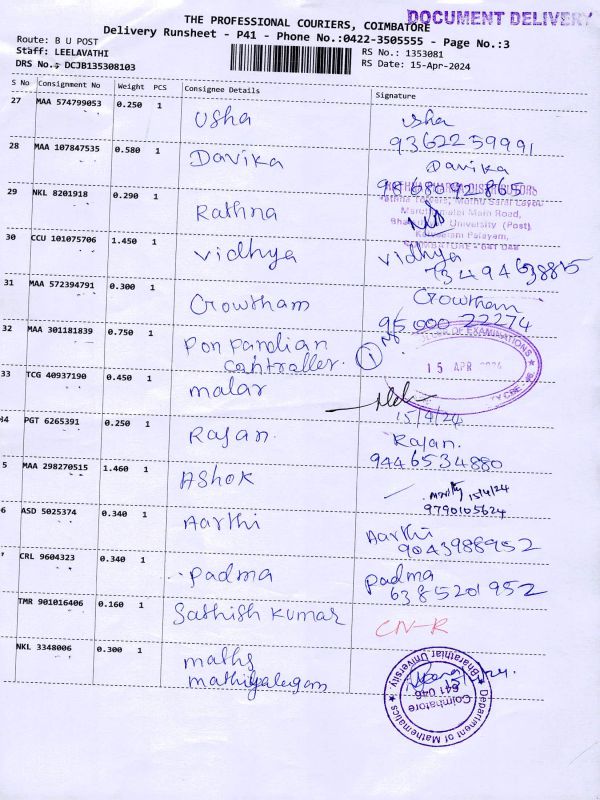 DOCUMENT DELIVERY
THE PROFESSIONAL COURIERS, COIMBATORE
Delivery Runsheet - P41 - Phone No.:0422-3505555 - Page No.:3
Route: B U POST
Staff: LEELAVATHI
DRS No.: DCJB135308103
RS No.: 1353081
RS Date: 15-Apr-2024
S No Consignment No Weight PCS Consignee Details Signature
27 MAA 574799053 0.250 1 Usha Usha
9362259991
28 MAA 107847535 0.580 1 Davika Davika
9868092865
29 NKL 8201918 0.290 1 Rathna
Main Road,
University (Post)
30 CCU 101075706 1.450 1 Vidhya Vidhya
7349463885
31 MAA 572394791 0.300 1 Crowtham Crowtham
95000 22274
32 MAA 301181839 0.750 1 Pon Pandian
Controller. 1
OF EXAMINATIONS
15 APR
33 TCG 40937190 0.450 1 malar
15/4/24
34 PGT 6265391 0.250 1 Rajan. Rajan.
9446534880
5 MAA 298270515 1.460 1 Ashok 15/4/24
9790105624
6 ASD 5025374 0.340 1 Aarthi Aarthi
9043988952
7 CRL 9604323 0.340 1 Padma Padma
6385201952
TMR 901016406 0.160 1 Sathish Kumar CN-R
NKL 3348006 0.300 1 maths
mathiyalagan
Department of Mathematics
Bharathiar University
Coimbatore
641 046